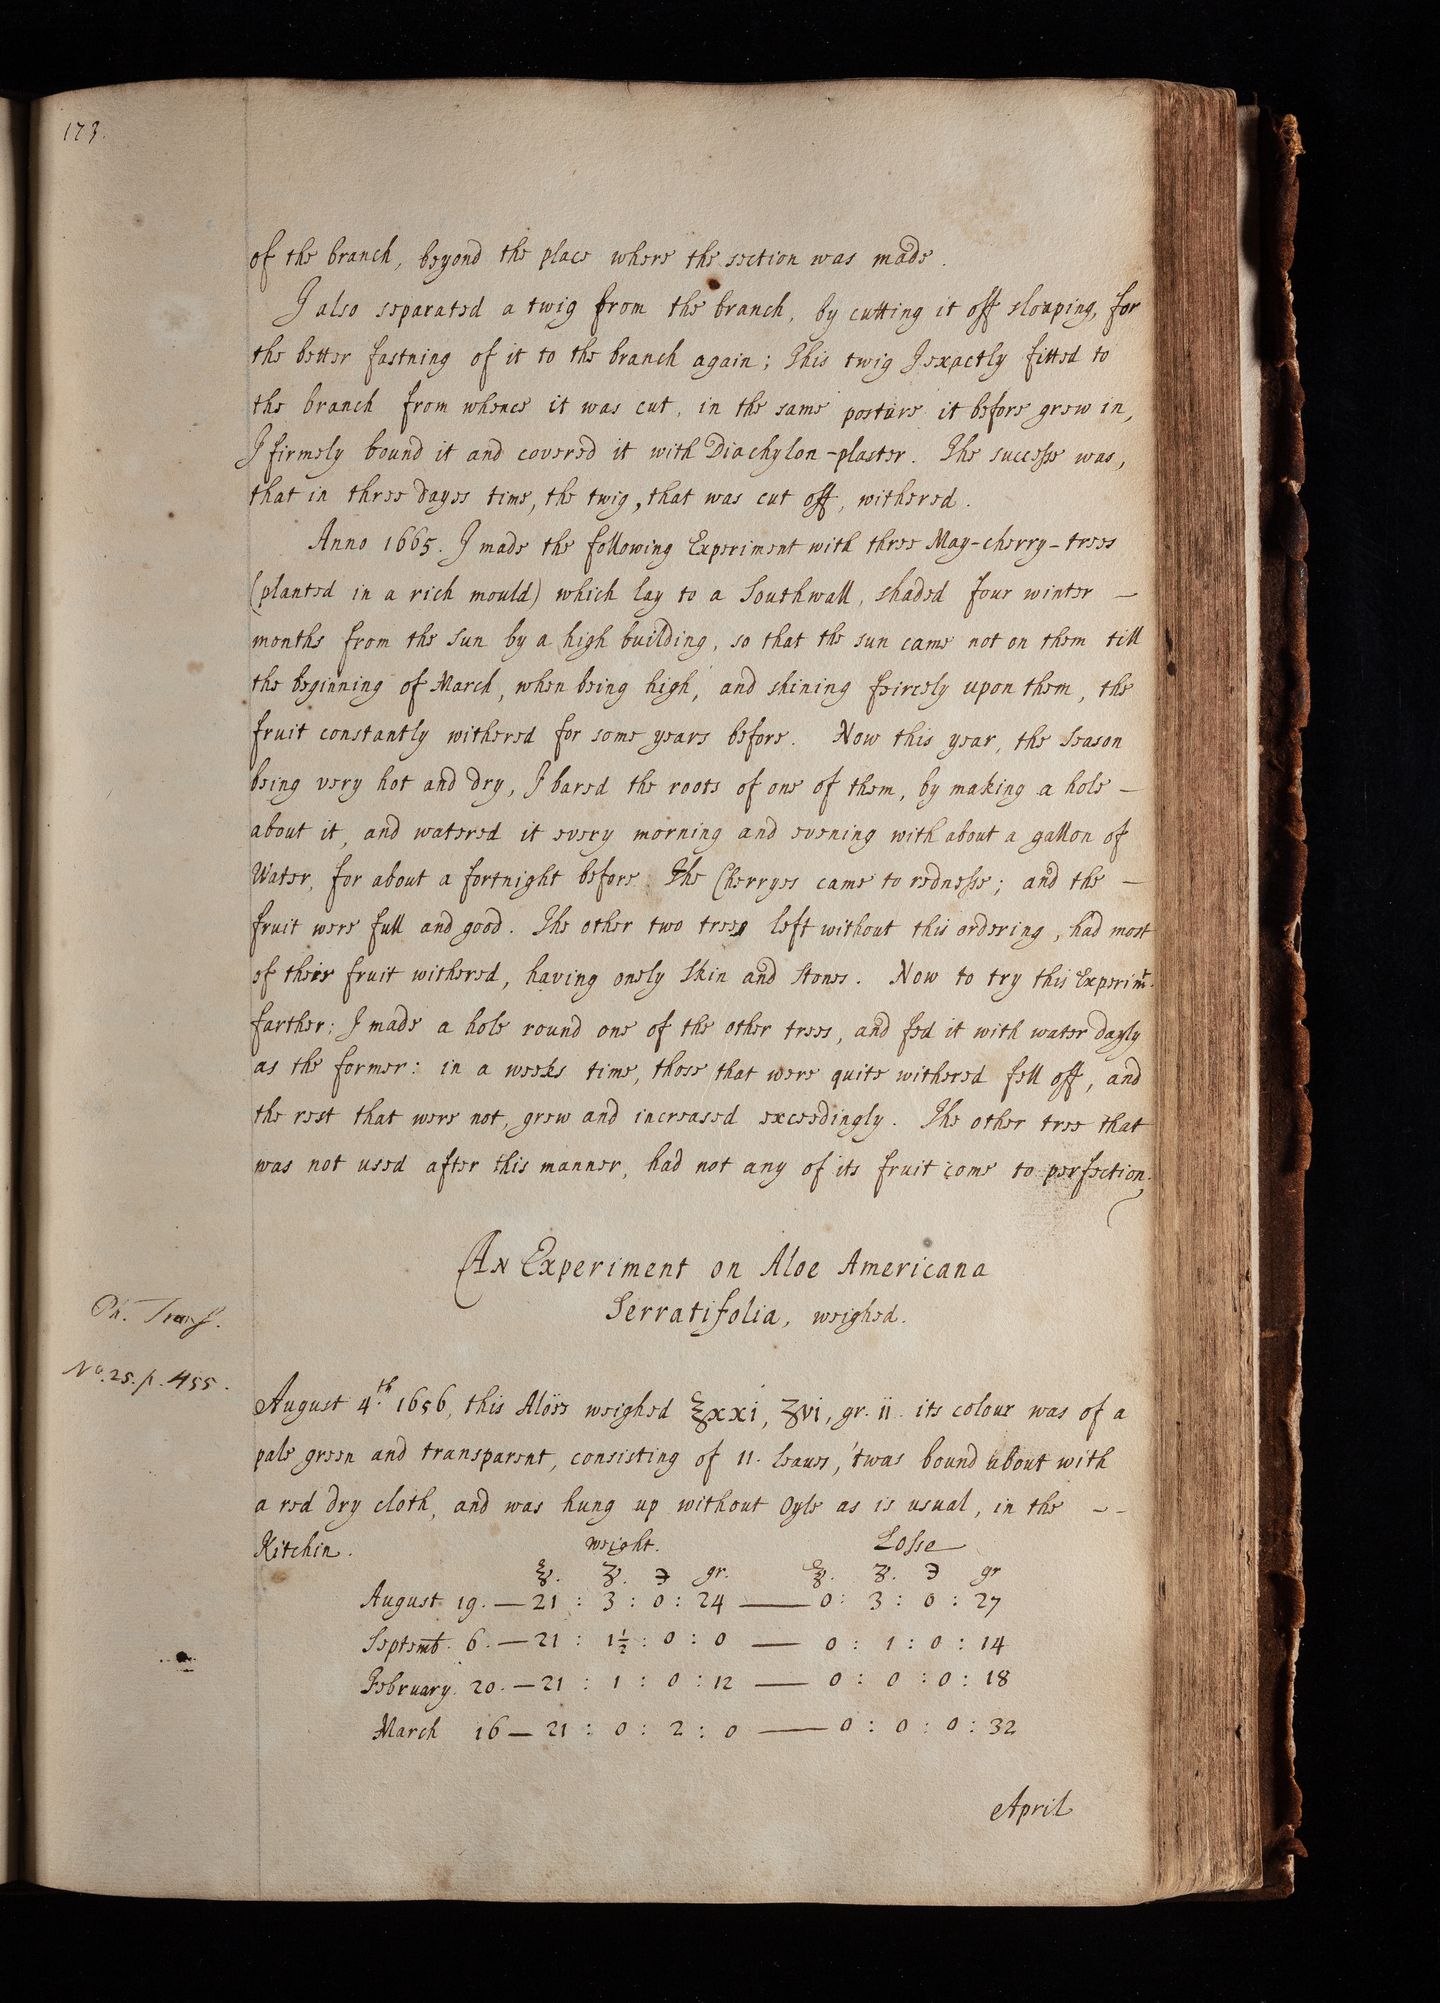 173.
of the branch, beyond the place where the section was made.
I also separated a twig from the branch, by cutting it off sloaping, for
the better fastning of it to the branch again; This twig I exactly fitted to
the branch from whence it was cut, in the same posture it before grew in,
I firmely bound it and covered it with Diachylon-plaster. The successe was,
that in three dayes time, the twig, that was cut off, withered.
Anno 1665. I made the following Experiment with three May-cherry-trees
(planted in a rich mould) which lay to a Southwall, shaded four winter —
months from the Sun by a high building, so that the sun came not on them till
the beginning of March, when being high, and shining feircely upon them, the
fruit constantly withered for some years before. Now this year, the Season
being very hot and dry, I bared the roots of one of them, by making a hole —
about it, and watered it every morning and evening with about a gallon of
Water, for about a fortnight before The Cherryes came to rednesse; and the —
fruit were full and good. The other two trees left without this ordering, had most
of their fruit withered, having onely Skin and Stones. Now to try this Experimt.
farther; I made a hole round one of the other trees, and fed it with water dayly
as the former: in a weeks time, those that were quite withered fell off, and
the rest that were not, grew and increased exceedingly. The other tree that
was not used after this manner, had not any of its fruit come to perfection.
An Experiment on Aloe Americana
Serratifolia, weighed.
Ph. Trans.
No. 25. p. 455.
August 4.th 1656, this Aloes weighed ℥xxi, ʒvi, gr. ii. its colour was of a
pale green and transparent, consisting of 11. leaues, 'twas bound about with
a red dry cloth, and was hung up without Oyle as is usual, in the – –
Kitchin. weight. Losse
℥. ʒ. ℈ gr. ℥. ʒ. ℈ gr
August 19. — 21 : 3 : 0 : 24 — 0 : 3 : 0 : 27
Septemb. 6. — 21 : 1½ : 0 : 0 — 0 : 1 : 0 : 14
February. 20. — 21 : 1 : 0 : 12 — 0 : 0 : 0 : 18
March 16 — 21 : 0 : 2 : 0 — 0 : 0 : 0 : 32
April